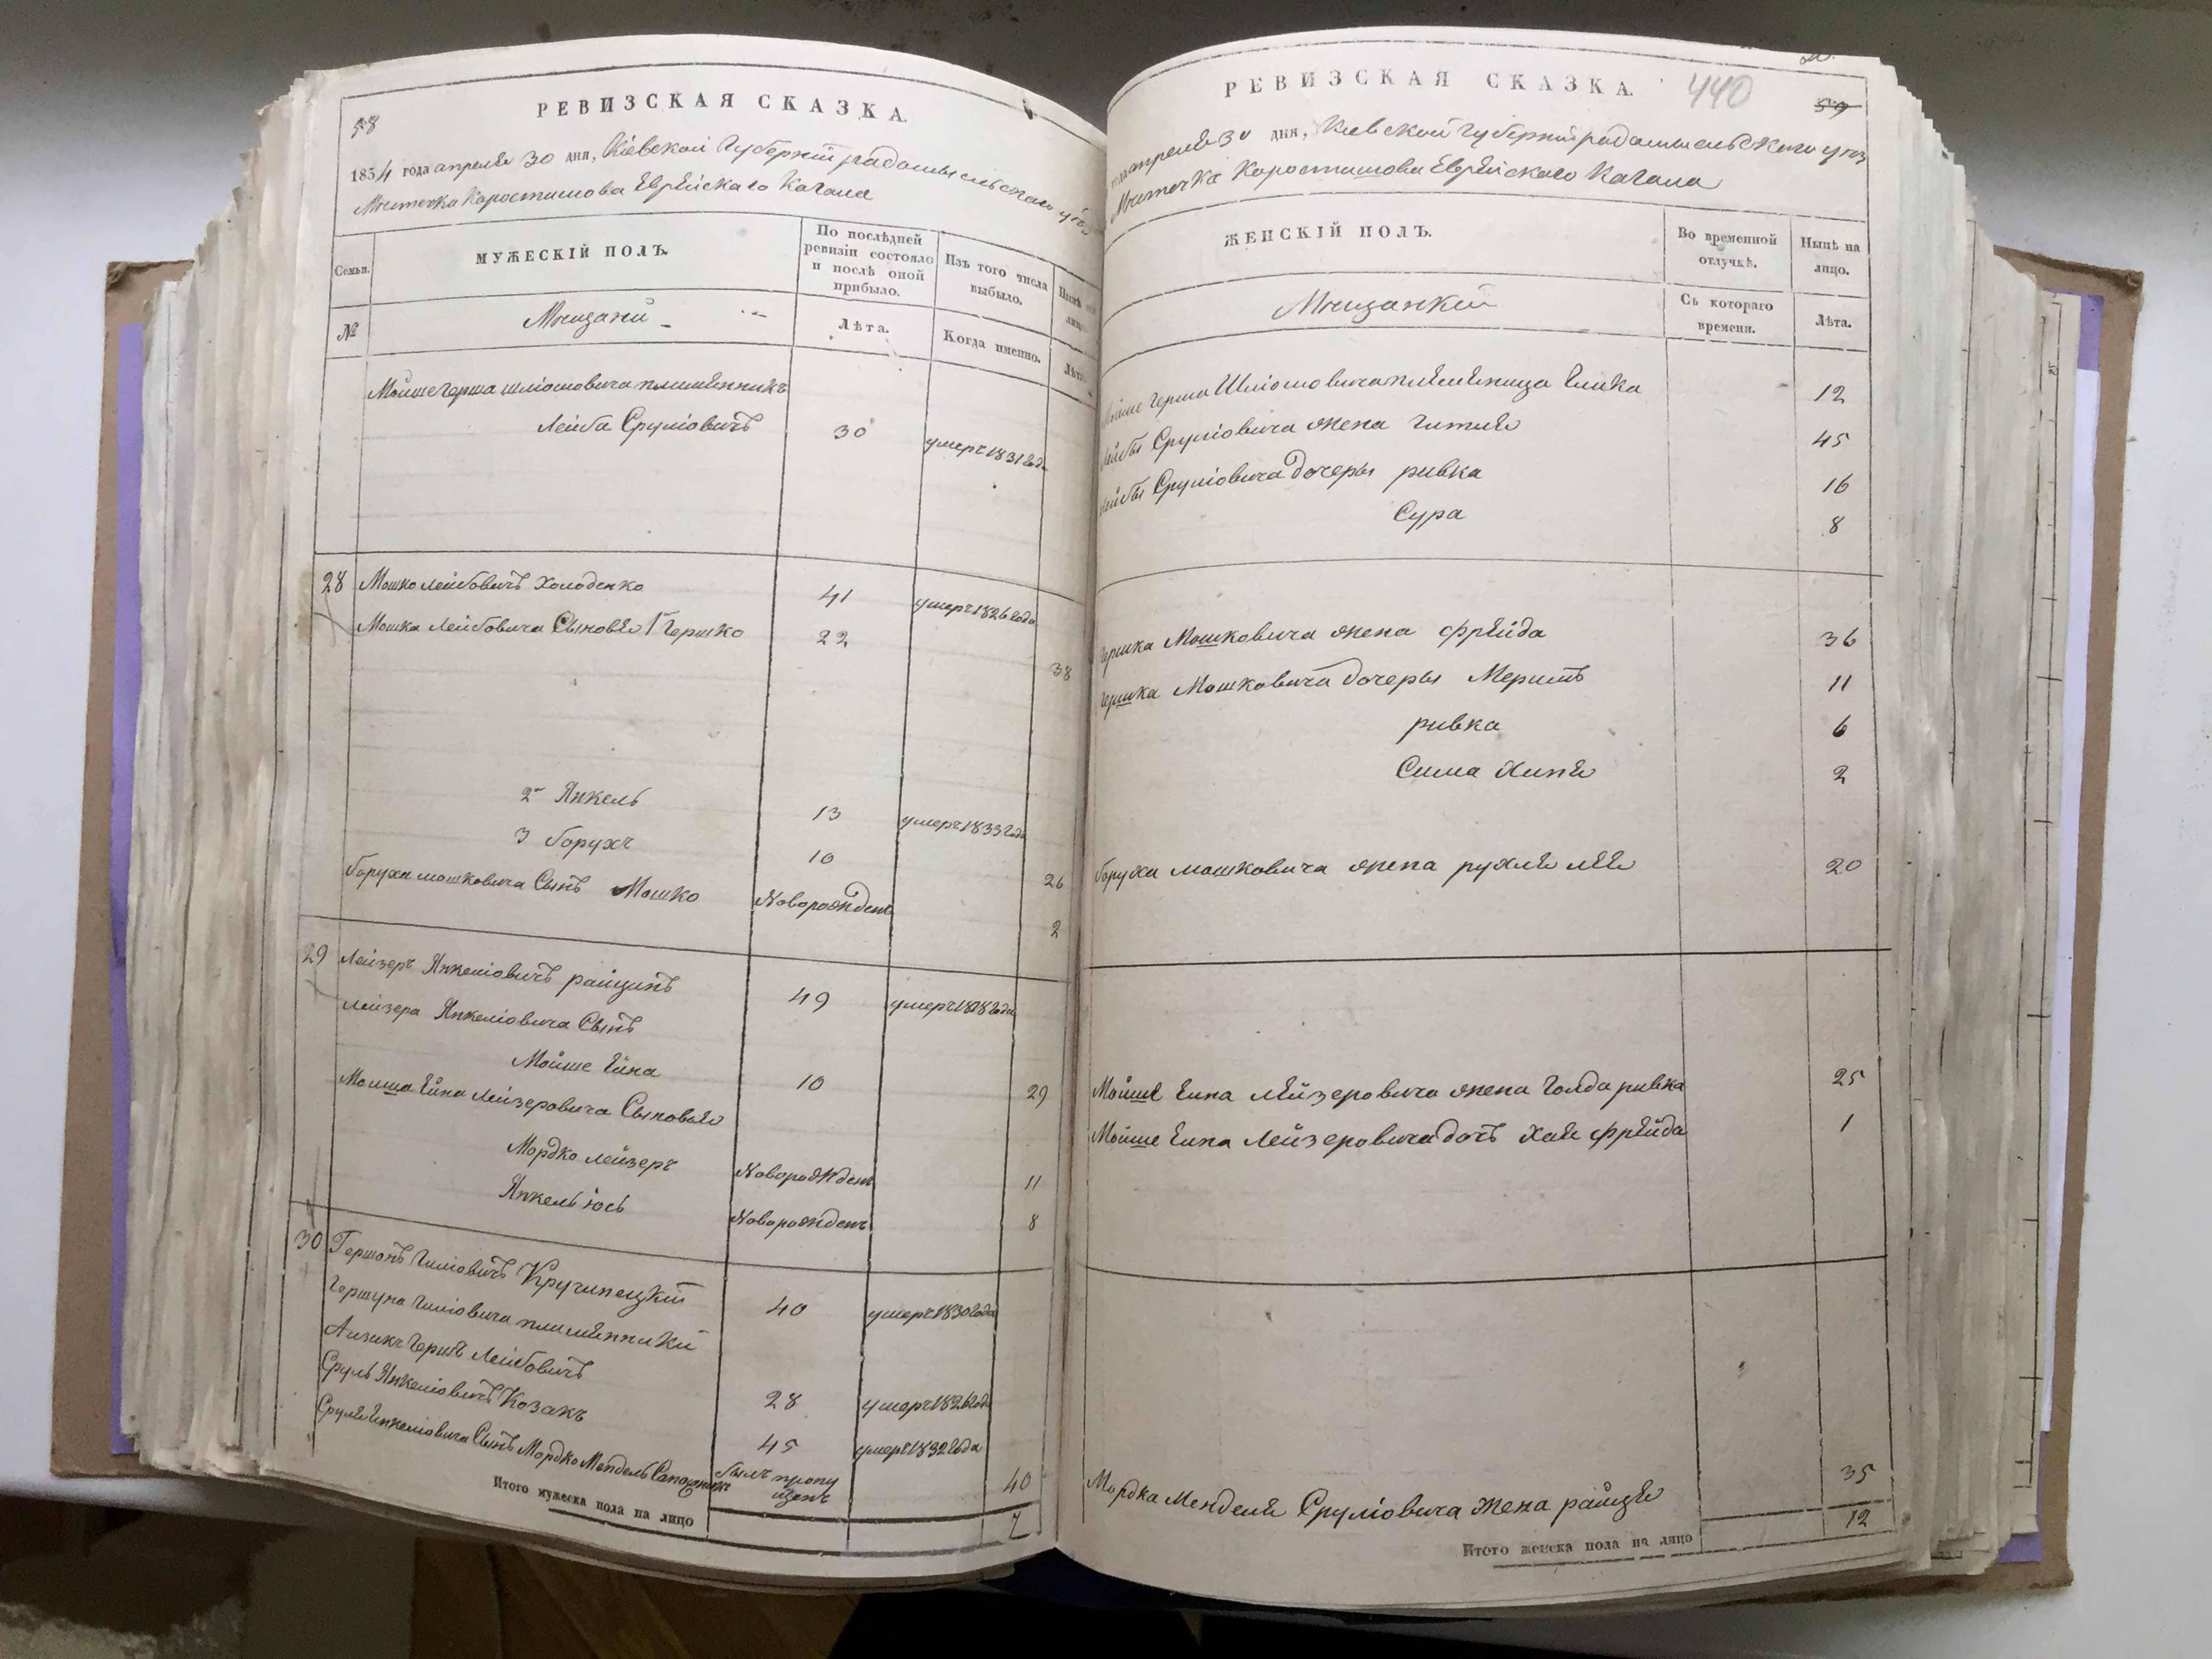 РЕВИЗСКАЯ СКАЗКА.
58
1834 года апреля 30 дня, Кіевской Губерніи радомысльскаго уѣз
Мѣстечка Коростишова Еврейскаго Кагала
Семьи.
МУЖЕСКІЙ ПОЛЪ.
По послѣдней ревизіи состояло и послѣ оной прибыло.
Изъ того числа выбыло.
Нынѣ на лицо
№
Мѣщани
Лѣта.
Когда именно.
Лѣта
Мойше герша шліомовича племенникъ
Лейба Сруліовичъ 30 умеръ 1831 года
28 Мошко лейбовичъ Холоденко 41 умеръ 1826 года
Мошка Лейбовича Сыновья 1 Гершко 22 38
2 Янкель 13 умеръ 1833 года
3 борухъ 10 26
боруха мошковича Сынъ Мошко Новорожденъ 2
29 Лейзеръ Янкеліовичъ райцинъ 49 умеръ 1828 года
Лейзера Янкеліовича Сынъ
Мойше Ейна 10 29
Мойша Ейна Лейзеровича Сыновья
Мордко лейзеръ Новорожденъ 11
Янкель іось Новорожденъ 8
30 Гершонъ Гиліовичъ Кручинецкій 40 умеръ 1830 года
Гершуна Гиліовича племенники
Аизикъ Гершъ Лейбовичъ 28 умеръ 1826 года
Сруль Янкеліовичъ Козакъ 45 умеръ 1832 года
Сруля Енкеліовича Сынъ Мордко Мендель Сапожникъ былъ пропущенъ 40
Итого мужеска пола на лицо 7
РЕВИЗСКАЯ СКАЗКА.
440
59
апреля 30 дня, Кіевской Губерніи радомысльскаго уѣз
Мѣстечка Коростишова Еврейскаго Кагала
ЖЕНСКІЙ ПОЛЪ.
Во временной отлучкѣ.
Нынѣ на лицо.
Мѣщанкии
Съ котораго времени.
Лѣта.
Мойше Герша Шліомовича племеница Елика 12
Лейбы Сруліовича жена Гитля 45
Лейбы Сруліовича дочеры ривка 16
Сура 8
Гершка Мошковича жена фрейда 36
Гершка Мошковича дочеры Меримъ 11
ривка 6
Сима Хиня 2
боруха мошковича жена рухля лѣя 20
Мойше Еина Лейзеровича жена Голда ривка 25
Мойше Еина Лейзеровича дочъ Хая фрейда 1
Мордка Менделя Сруліовича жена райзя 35
Итого женска пола на лицо 12